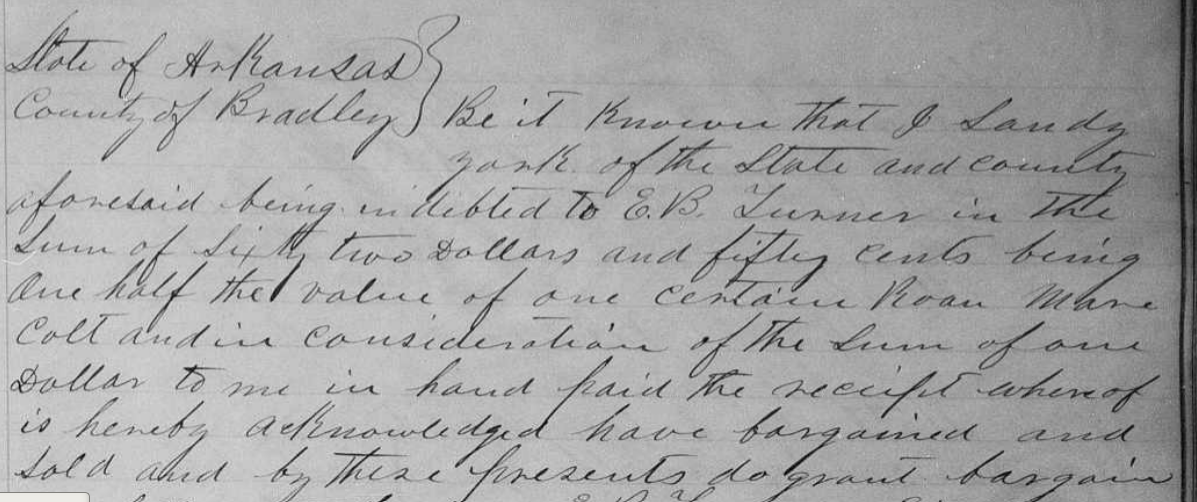 State of Arkansas
County of Bradley Be it Known that I Sandy
york of the State and county
aforesaid being indebted to E.B. Turner in the
Sum of Sixty two Dollars and fifty cents being
One half the value of one certain Roan Mare
Colt and in consideration of the Sum of one
Dollar to me in hand paid the receipt whereof
is hereby acknowledged have bargained and
Sold and by these presents do grant bargain